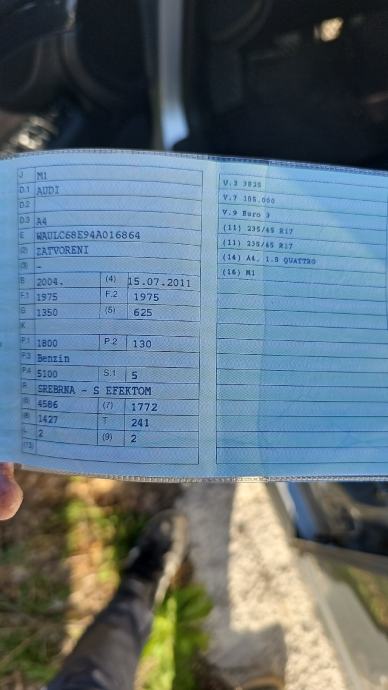 J M1
D.1 AUDI
D.2
D.3 A4
E WAULC68E94A016864
(2) ZATVORENI
(3) -
B 2004. (4) 15.07.2011
F.1 1975 F.2 1975
G 1350 (5) 625
K
P.1 1800 P.2 130
P.3 Benzin
P.4 5100 S.1 5
R SREBRNA - S EFEKTOM
(6) 4586 (7) 1772
(8) 1427 T 241
L 2 (9) 2
V.7 105.000
V.9 Euro 3
(11) 235/45 R17
(11) 235/45 R17
(14) A4, 1.8 QUATTRO
(16) M1